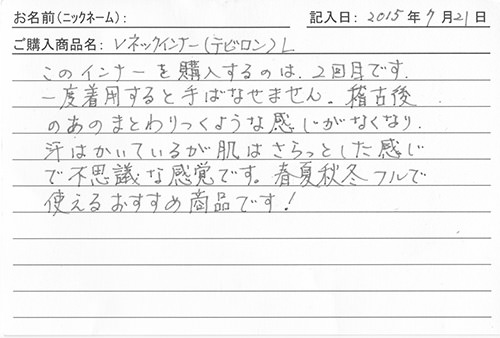 お名前(ニックネーム): 記入日: 2015年7月21日
ご購入商品名: Vネックインナー(テビロン)L
このインナーを購入するのは、2回目です.
一度着用すると手ばなせません。稽古後
のあのまとわりつくような感じがなくなり、
汗はかいているが肌はさらっとした感じ
で不思議な感覚です。春夏秋冬フルで
使えるおすすめ商品です!